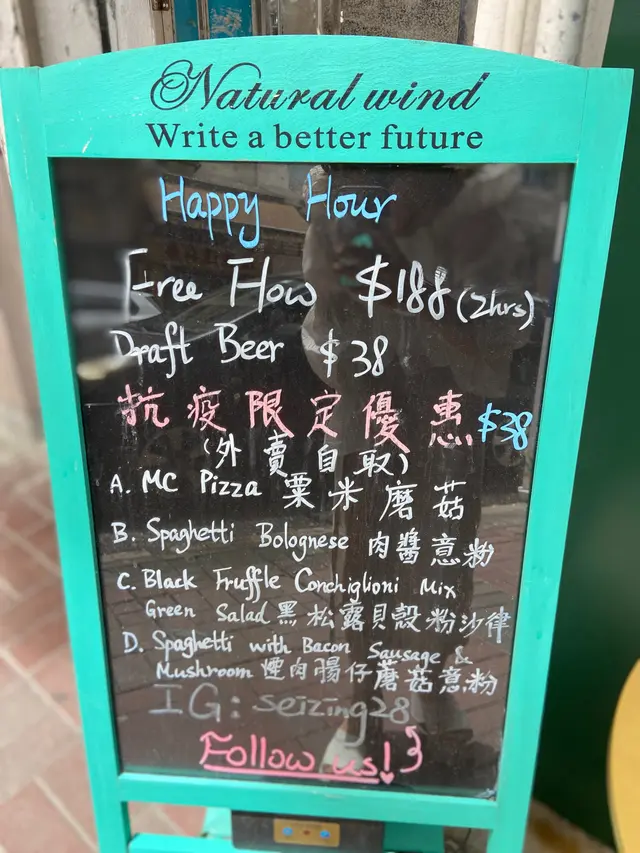 Natural wind
Write a better future
Happy Hour
Free Flow $188 (2hrs)
Draft Beer $38
抗疫限定優惠 $38
(外賣自取)
A. MC Pizza 粟米磨菇
B. Spaghetti Bolognese 肉醬意粉
C. Black Truffle Conchiglioni Mix
Green Salad 黑松露貝殼粉沙律
D. Spaghetti with Bacon Sausage &
Mushroom 煙肉腸仔蘑菇意粉
IG: seizing28
Follow us!